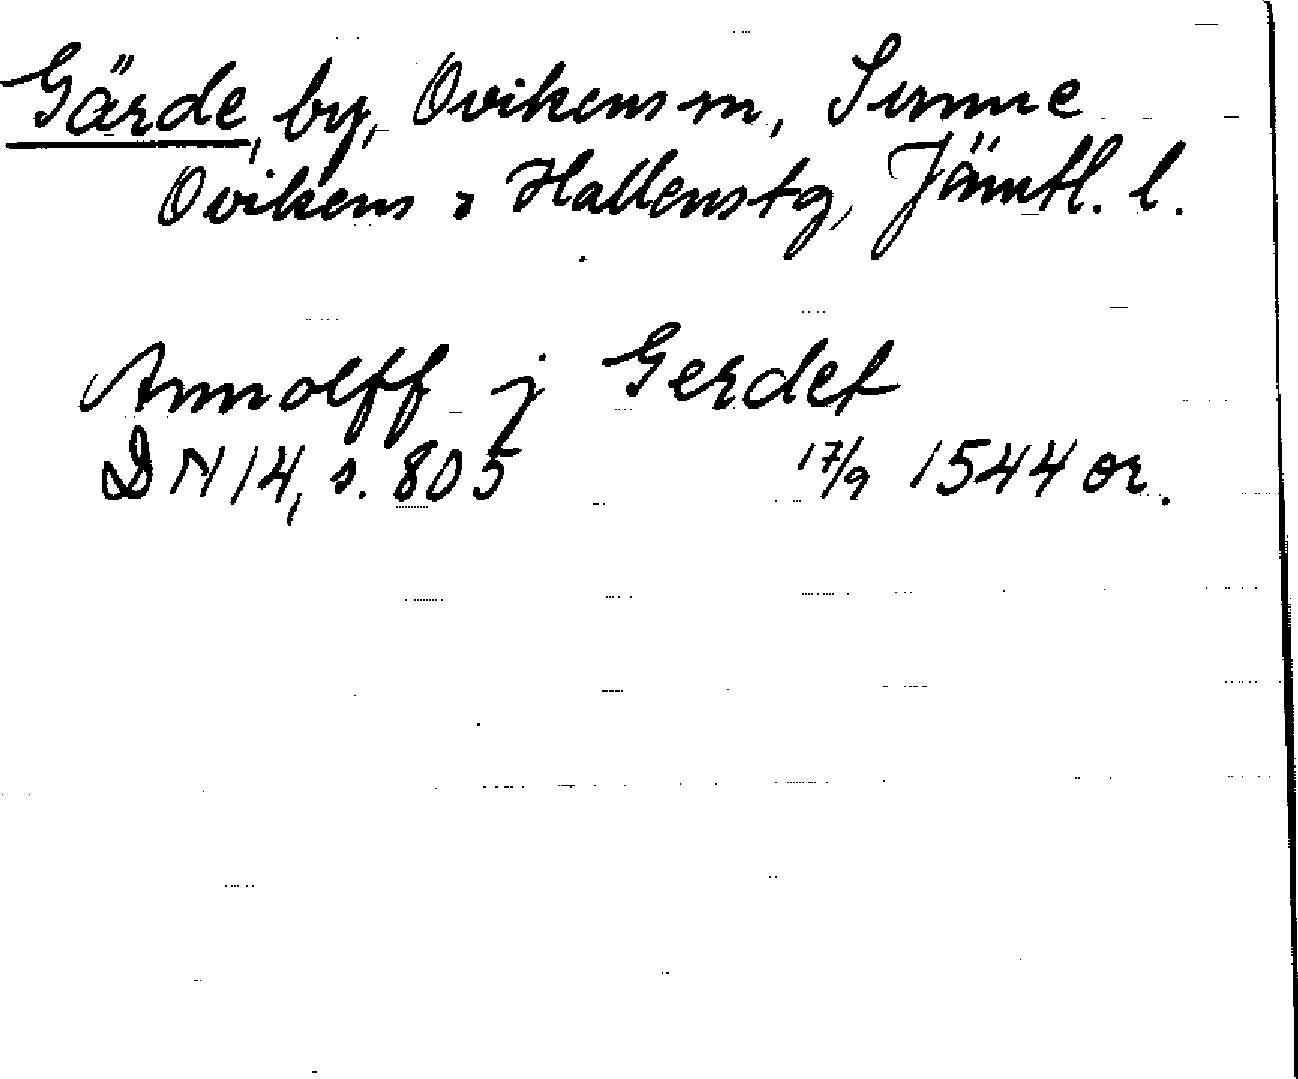 Gärde, by, Ovikens sn, Sunne
Ovikens o Hallens tg, Jämtl. l.
Annolff j Gerdet
DN 14, s. 805 17/9 1544 or.